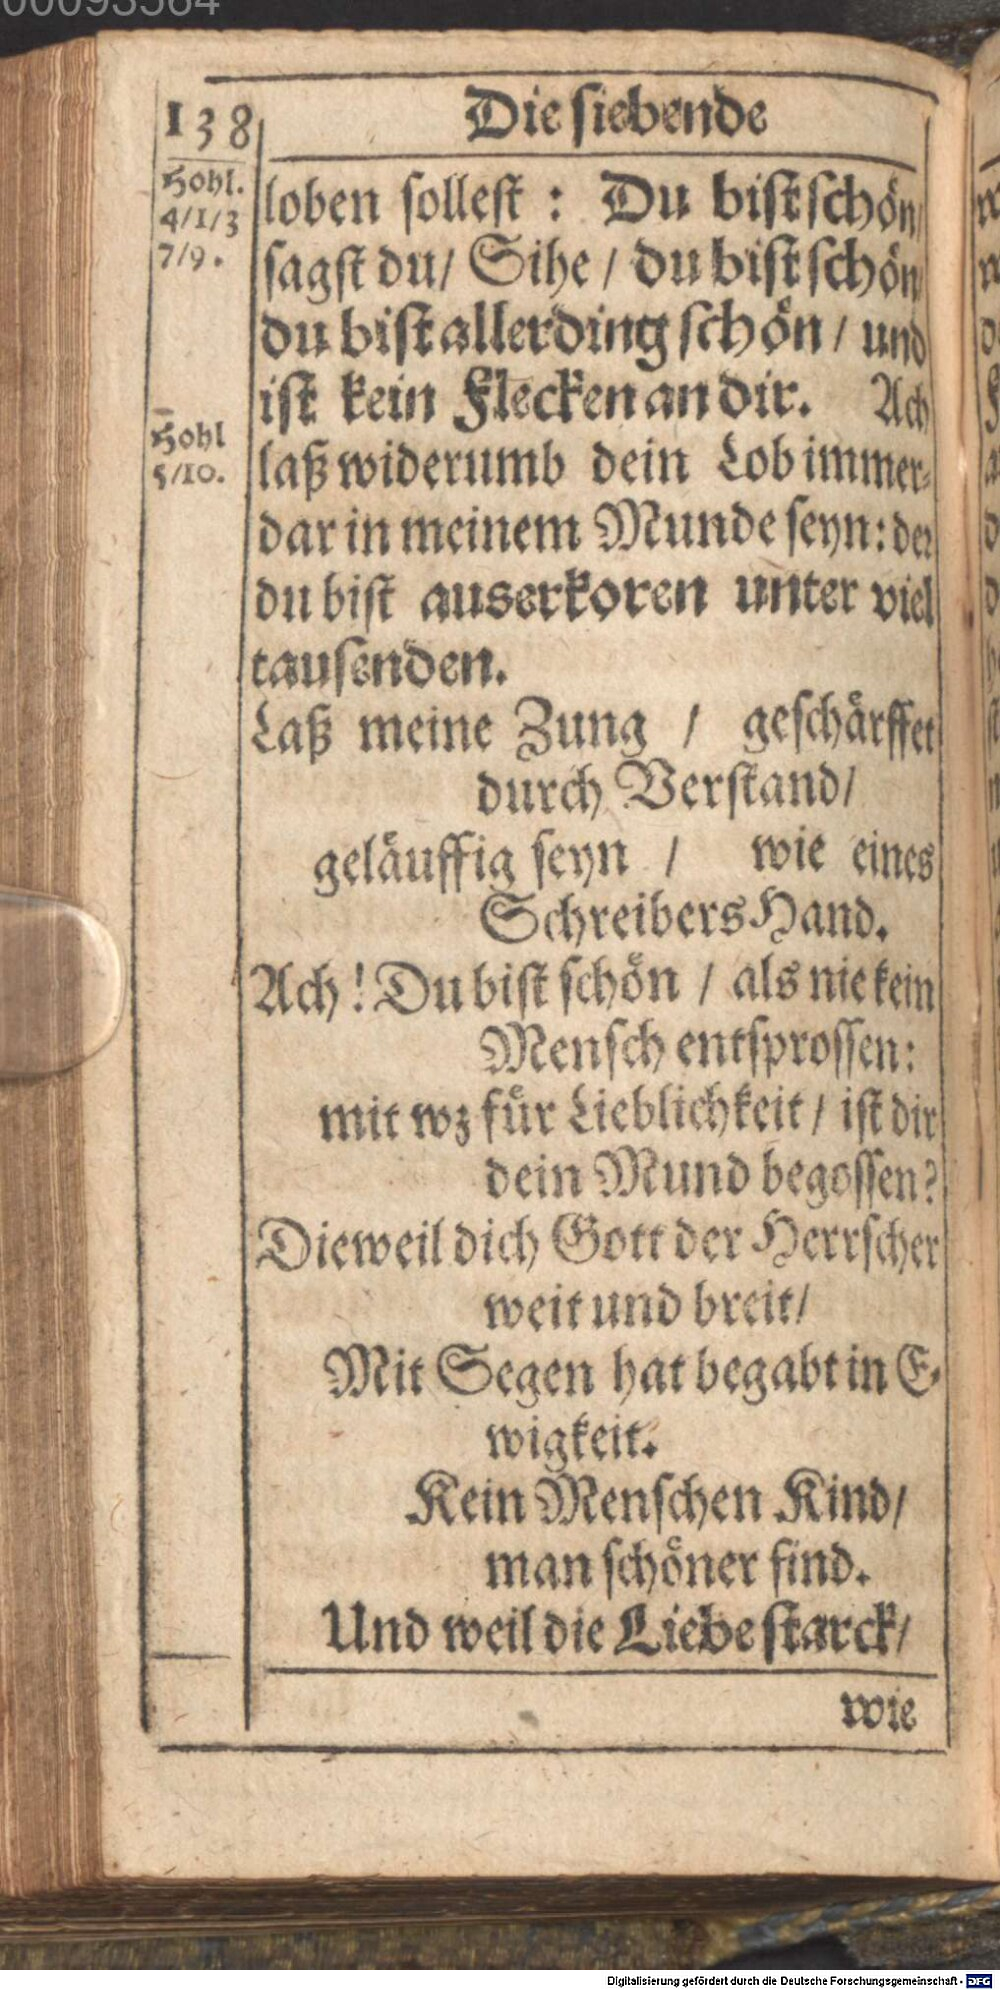 138
Die siebende
Hohl.
4/1/3
7/9.
loben sollest : Du bist schön/
sagst du/ Sihe / du bist schön/
du bist allerding schön / und
ist kein Flecken an dir. Ach
Hohl
5/10.
laß widerumb dein Lob immer-
dar in meinem Munde seyn: der
du bist auserkoren unter viel
tausenden.
Laß meine Zung / geschärffet
durch Verstand/
geläuffig seyn / wie eines
Schreibers Hand.
Ach! Du bist schön / als nie kein
Mensch entsprossen:
mit wz für Lieblichkeit / ist dir
dein Mund begossen?
Dieweil dich Gott der Herrscher
weit und breit/
Mit Segen hat begabt in E-
wigkeit.
Kein Menschen Kind/
man schöner find.
Und weil die Liebe starck/
wie
Digitalisierung gefördert durch die Deutsche Forschungsgemeinschaft - DFG